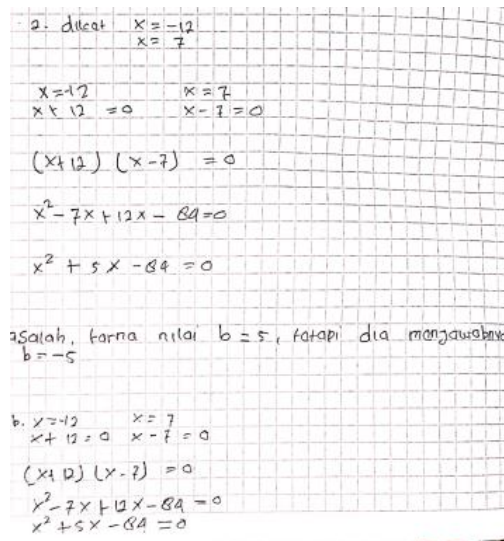 2. dilcat x = -12
x = 7
x = -12 x = 7
x + 12 = 0 x - 7 = 0
(x + 12) (x - 7) = 0
x² - 7x + 12x - 84 = 0
x² + 5x - 84 = 0
a salah, karna nilai b = 5, tatapi dia manjawabnya
b = -5
b. x = -12 x = 7
x + 12 = 0 x - 7 = 0
(x + 12) (x - 7) = 0
x² - 7x + 12x - 84 = 0
x² + 5x - 84 = 0